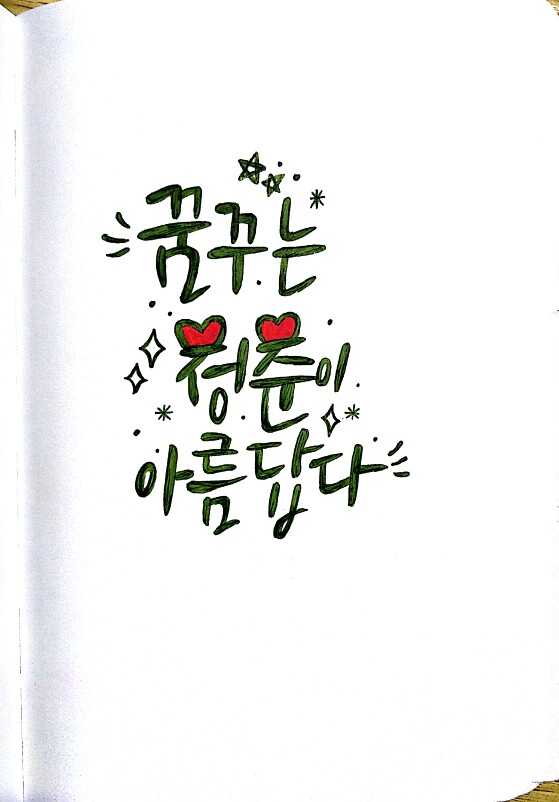 꿈꾸는
청춘이
아름답다